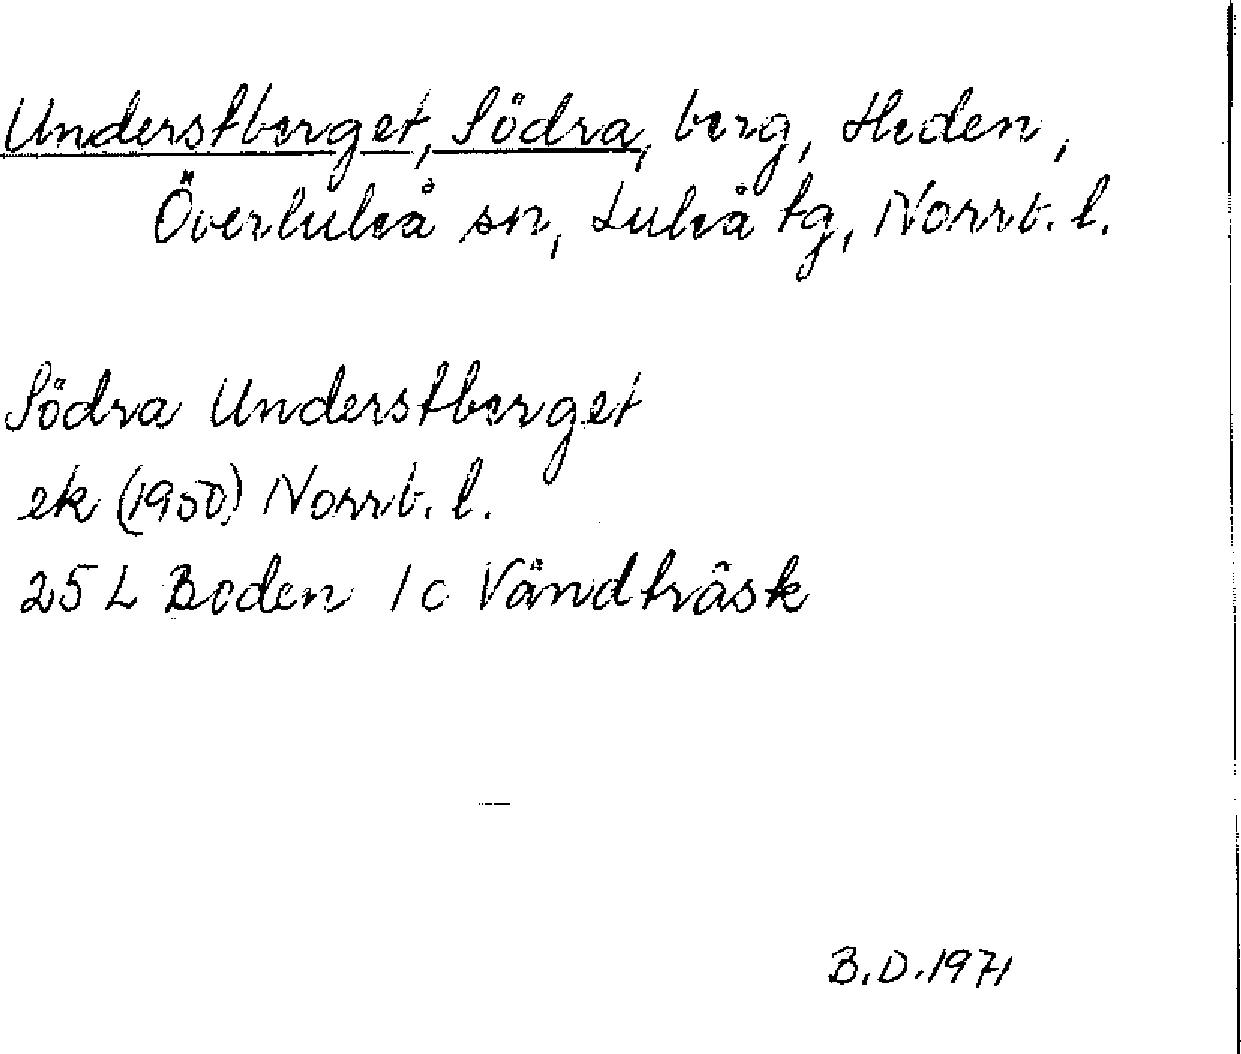 Understberget, Södra, berg, Heden,
Överluleå sn, Luleå tg, Norrb. l.
Södra Understberget
ek (1950) Norrb. l.
25 L Boden 1 c Vändträsk
B.D. 1971